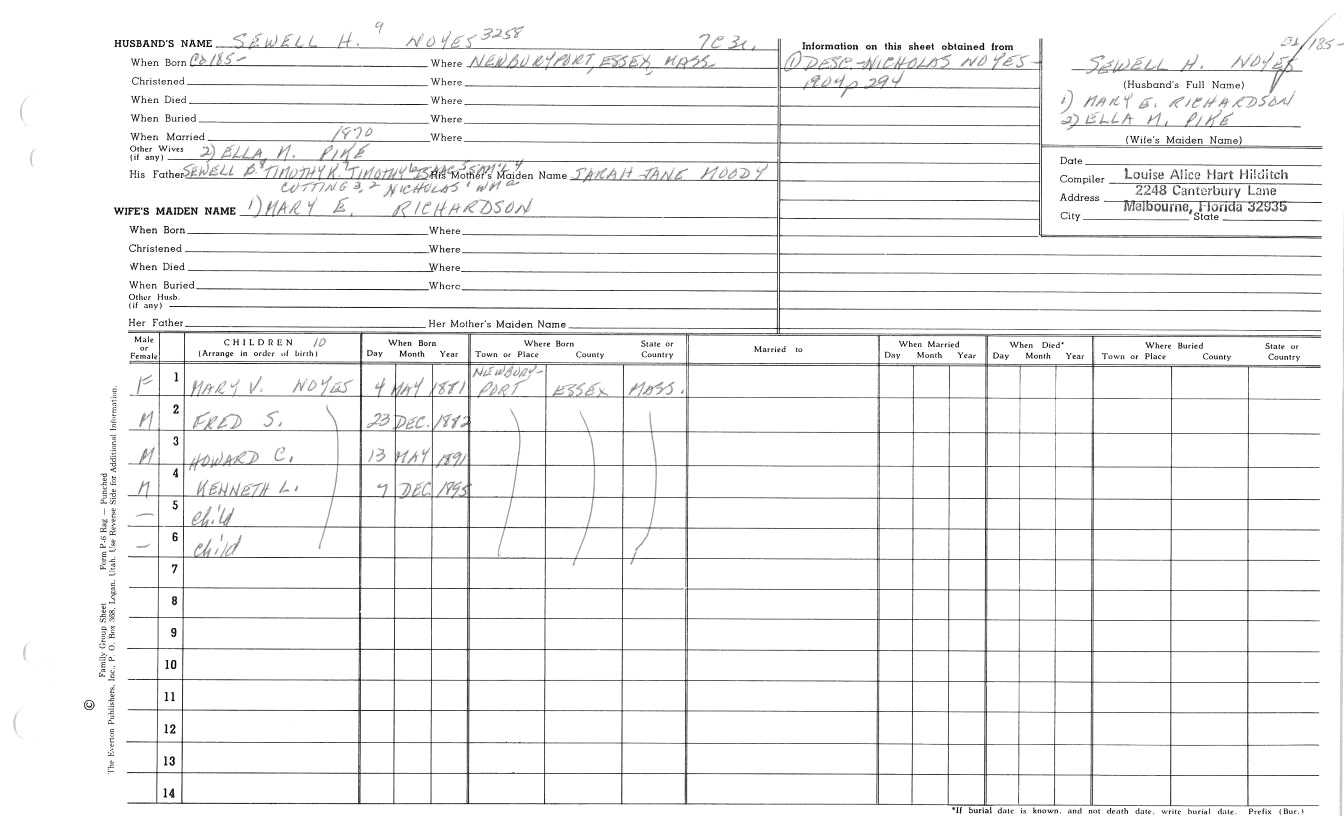 HUSBAND'S NAME SEWELL H. 9 NOYES 3258 7 C 3c.
When Born Ca 185- Where NEWBURYPORT, ESSEX, MASS
Christened Where
When Died Where
When Buried Where
When Married 1870 Where
Other Wives (if any) 2) ELLA M. PIKE
His Father SEWELL B.8 TIMOTHY K.7 TIMOTHY 6 ISAAC 5 SAM'L 4 His Mother's Maiden Name SARAH JANE MOODY
CUTTING 3, 2 NICHOLAS 1 WM a
WIFE'S MAIDEN NAME 1) MARY E. RICHARDSON
When Born Where
Christened Where
When Died Where
When Buried Where
Other Husb. (if any)
Her Father Her Mother's Maiden Name
Information on this sheet obtained from
(1) DESC-NICHOLAS NOYES-
1904 p 294
/185-
SEWELL H. NOYES
(Husband's Full Name)
1) MARY E. RICHARDSON
2) ELLA M. PIKE
(Wife's Maiden Name)
Date
Compiler Louise Alice Hart Hilditch
Address 2248 Canterbury Lane
Melbourne, Florida 32935
City State
Male or Female
CHILDREN 10
(Arrange in order of birth)
When Born
Day Month Year
Where Born
Town or Place County State or Country
Married to
When Married
Day Month Year
When Died*
Day Month Year
Where Buried
Town or Place County State or Country
F 1 MARY V. NOYES 4 MAY 1881 NEWBURY-PORT ESSEX MASS.
M 2 FRED S. 23 DEC. 1882
M 3 HOWARD C. 13 MAY 1891
M 4 KENNETH L. 7 DEC 1895
— 5 child
— 6 child
7
8
9
10
11
12
13
14
*If burial date is known, and not death date, write burial date. Prefix (Bur.)
© Family Group Sheet Form P-6 Rag — Punched
The Everton Publishers, Inc., P. O. Box 368, Logan, Utah. Use Reverse Side for Additional Information.